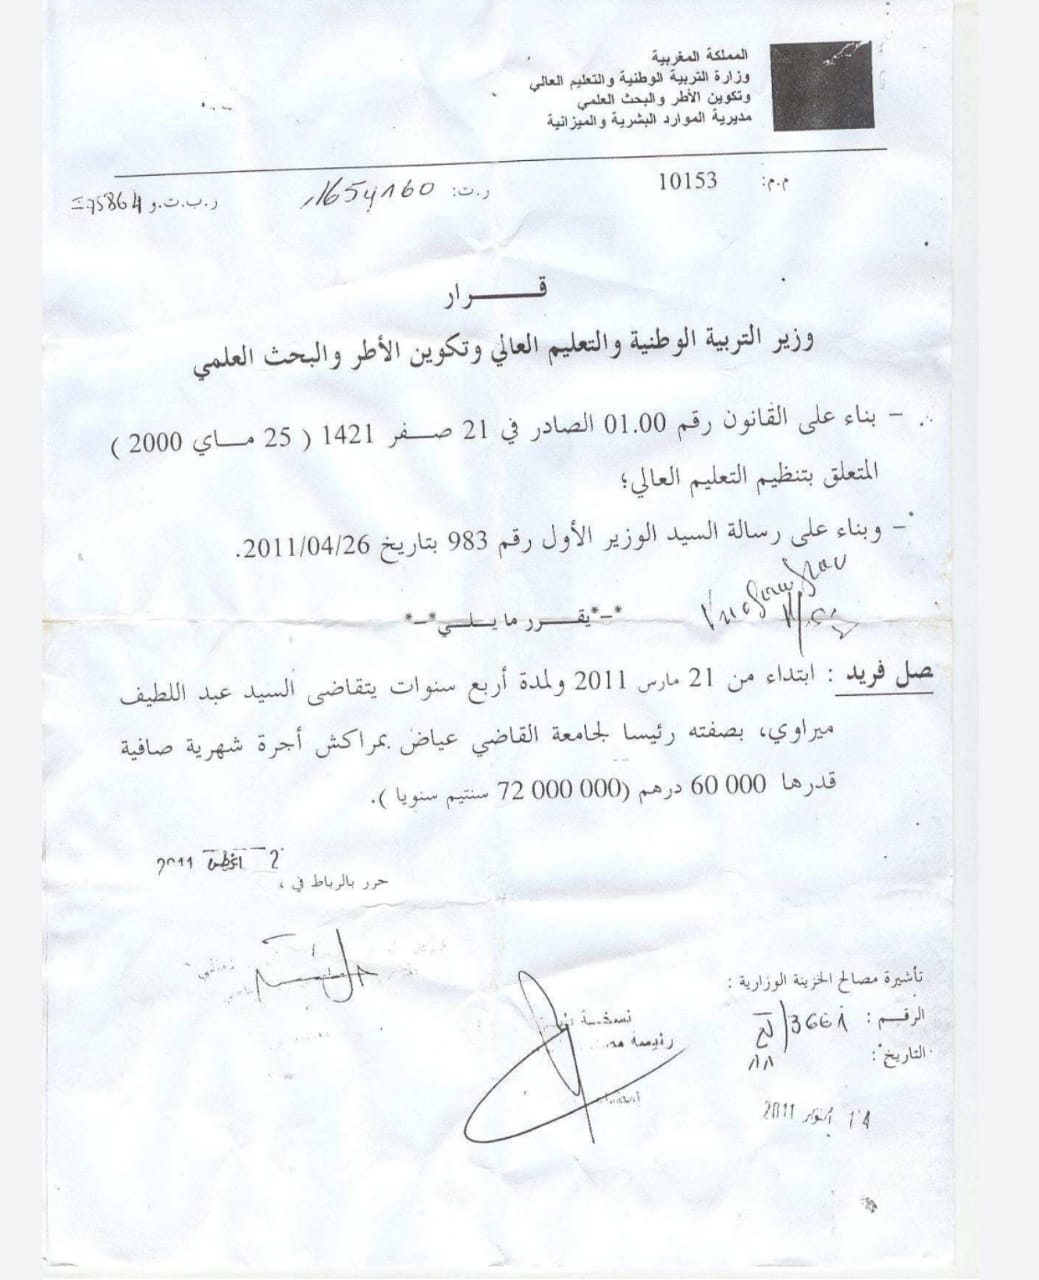 المملكة المغربية
وزارة التربية الوطنية والتعليم العالي
وتكوين الأطر والبحث العلمي
مديرية الموارد البشرية والميزانية
م.م: 10153 ر.ت: 11654160 ر.ب.ت.و I75864
قـــــرار
وزير التربية الوطنية والتعليم العالي وتكوين الأطر والبحث العلمي
– بناء على القانون رقم 01.00 الصادر في 21 صـــفر 1421 ( 25 مـــاي 2000 )
المتعلق بتنظيم التعليم العالي؛
– وبناء على رسالة السيد الوزير الأول رقم 983 بتاريخ 2011/04/26.
*–*يقـــرر ما يـــلـــي*–*
صل فريد : ابتداء من 21 مارس 2011 ولمدة أربع سنوات يتقاضى السيد عبد اللطيف
ميراوي، بصفته رئيسا لجامعة القاضي عياض بمراكش أجرة شهرية صافية
قدرها 60 000 درهم (72 000 000 سنتيم سنويا ).
2 اغطس 2011
حرر بالرباط في ،
تأشيرة مصالح الخزينة الوزارية :
الرقـــم :
التاريخ :
نسخـــة
رئيسة
إمضاء
14 أكتوبر 2011